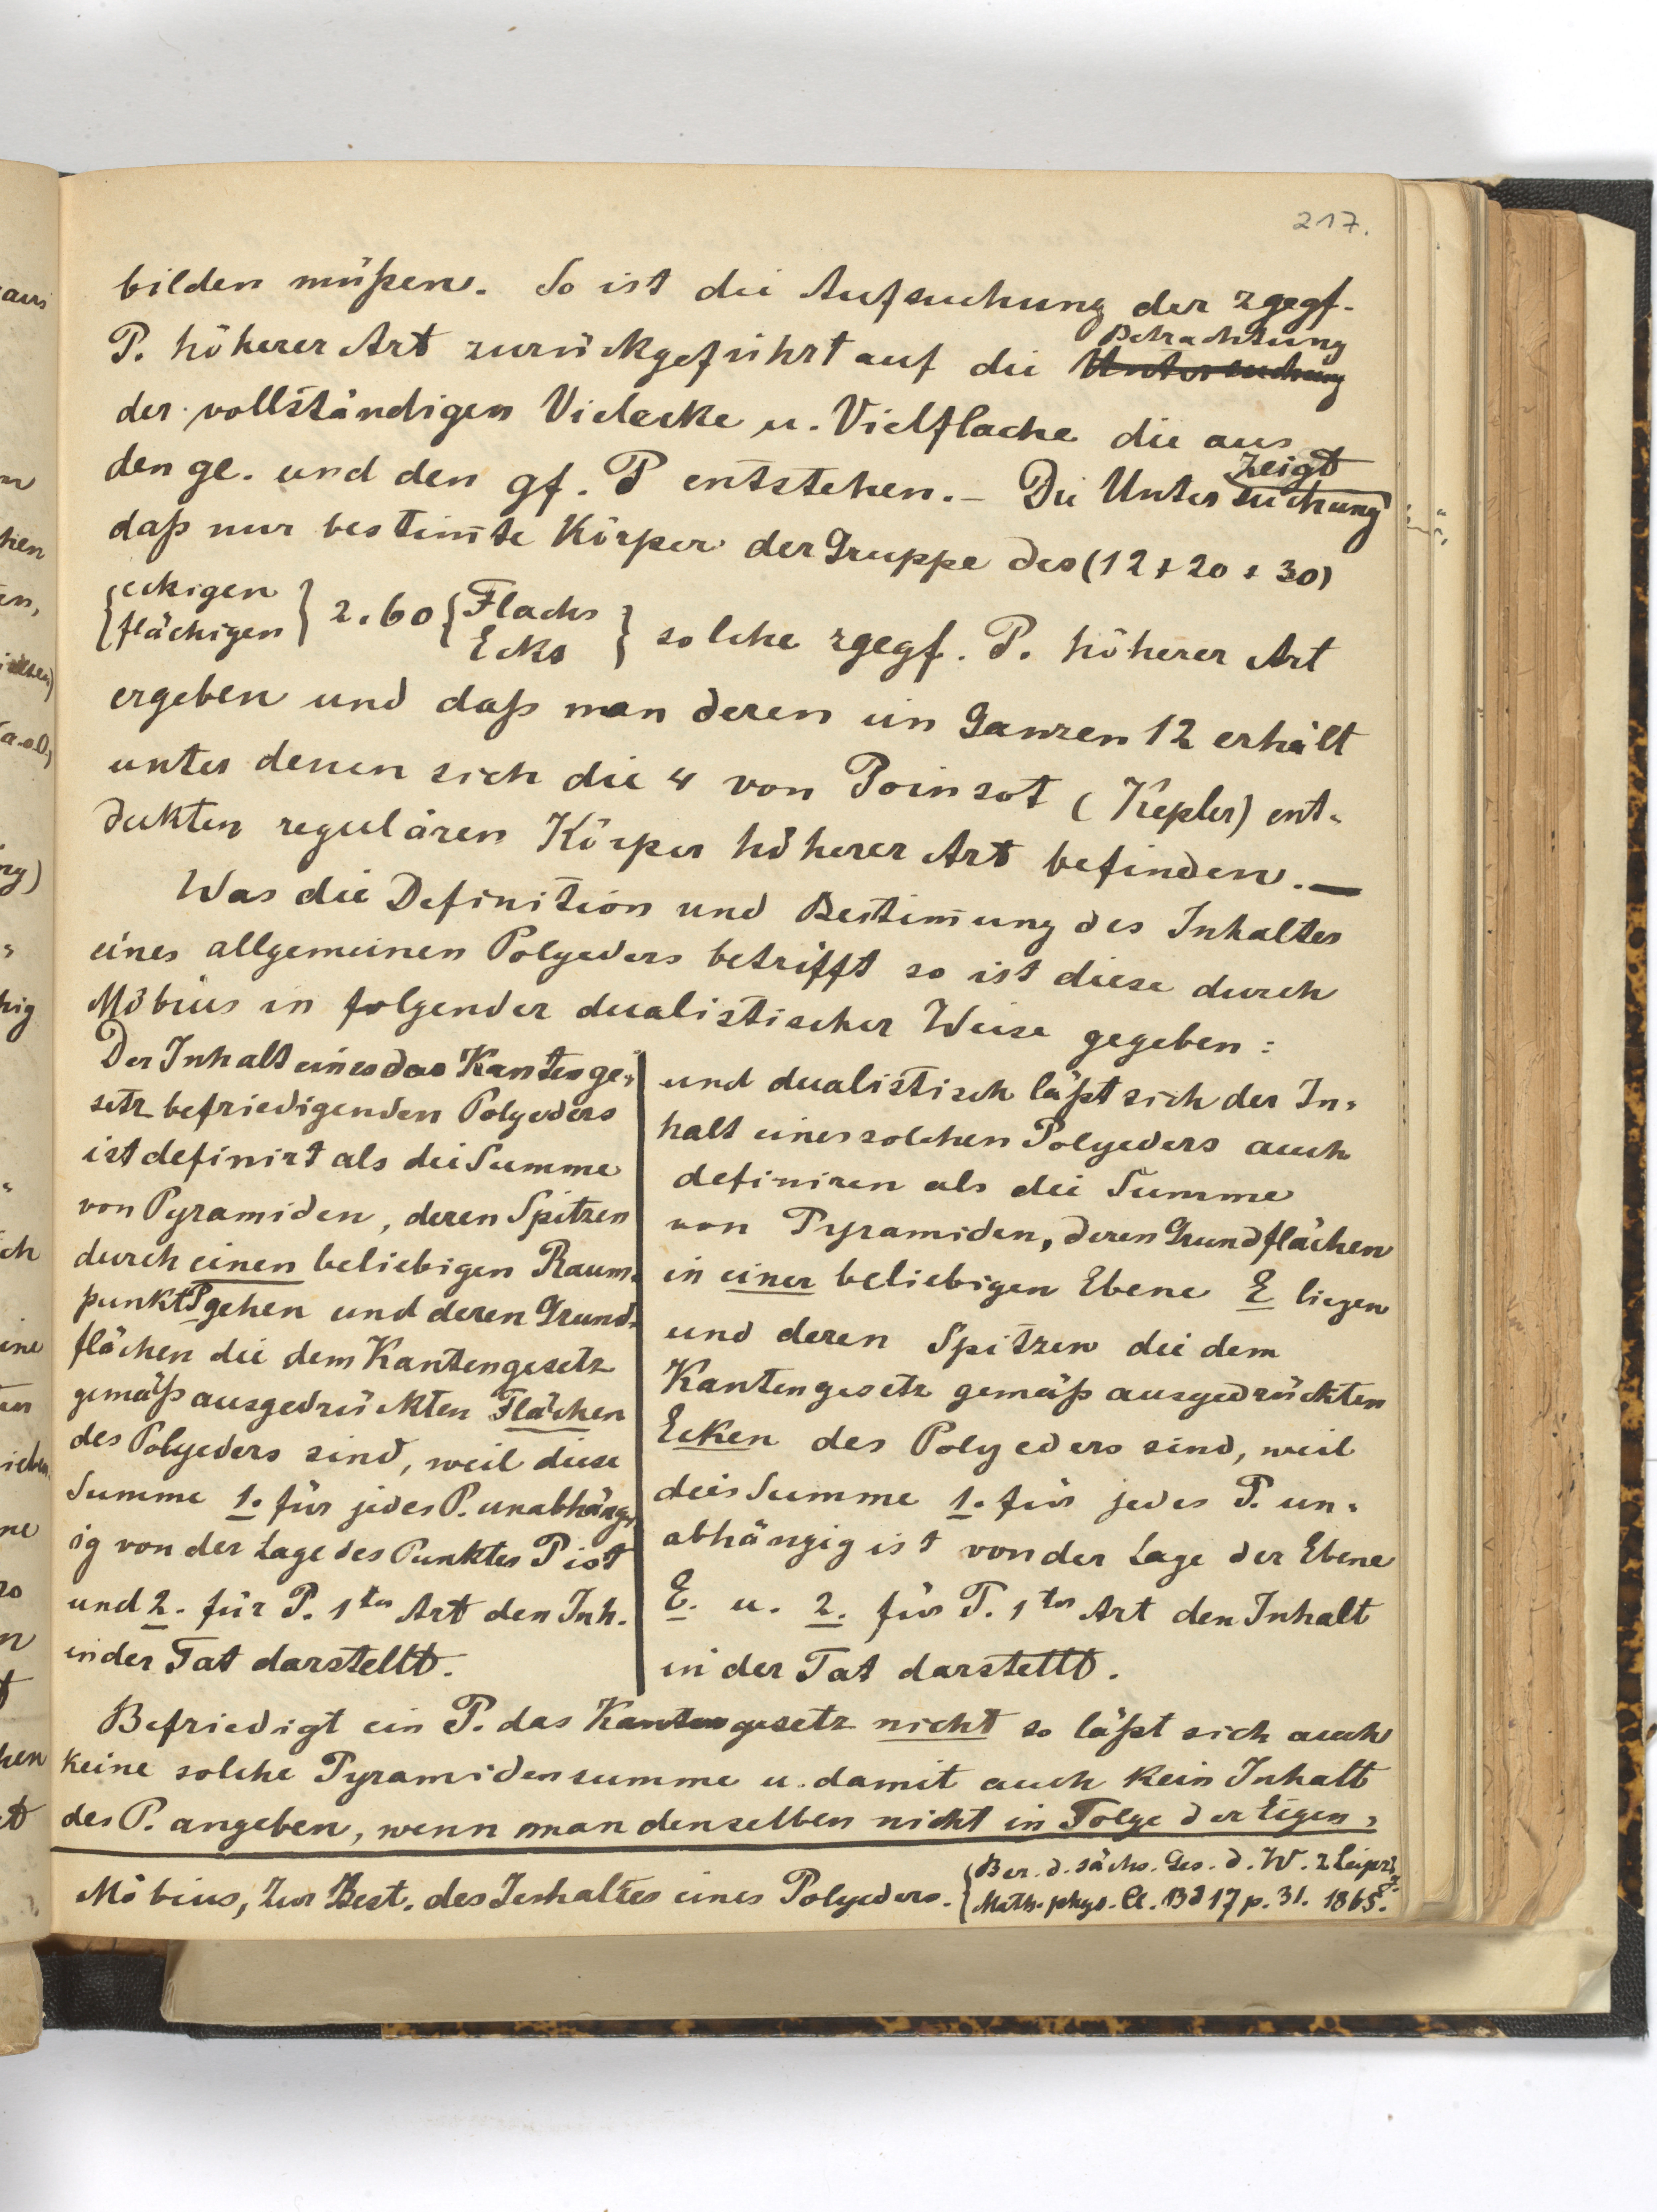 217.
bilden müßen. So ist die Aufsuchung der zgegf.
P. höherer Art zurückgeführt auf die Untersuchung Betrachtung
der vollständigen Vielecke u. Vielflache die aus
den ge. und den gf. P entstehen. – Die Untersuchung zeigt
daß nur bestim̄te Körper der Gruppe des (12 + 20 + 30)
{eckigen
flächigen} 2.60 {Flachs
Ecks} solche zgegf. P. höherer Art
ergeben und daß man deren im Ganzen 12 erhält
unter denen sich die 4 von Poinsot (Kepler) ent-
dekten regulären Körper höherer Art befinden. —
Was die Definition und Bestim̄ung des Inhaltes
eines allgemeinen Polyeders betrifft so ist diese durch
Möbius in folgender dualistischer Weise gegeben:
Der Inhalt eines das Kantenge-
setz befriedigenden Polyeders
ist definirt als die Summe
von Pyramiden, deren Spitzen
durch einen beliebigen Raum-
punkt P gehen und deren Grund-
flächen die dem Kantengesetz
gemäß ausgedrückten Flächen
des Polyeders sind, weil diese
Summe 1. für jedes P. unabhäng-
ig von der Lage des Punktes P ist
und 2. für P. 1ter Art den Inh.
in der Tat darstellt.
und dualistisch läßt sich der In-
halt eines solchen Polyeders auch
definiren als die Summe
von Pyramiden, deren Grundflächen
in einer beliebigen Ebene E liegen
und deren Spitzen die dem
Kantengesetz gemäß ausgedrückten
Ecken des Polyeders sind, weil
dies Summe 1. für jedes P. un-
abhängig ist von der Lage der Ebene
E. u. 2. für P. 1ter Art den Inhalt
in der Tat darstellt.
Befriedigt ein P. das Kantengesetz nicht so läßt sich auch
keine solche Pyramidensumme u. damit auch kein Inhalt
des P. angeben, wenn man denselben nicht in Folge der Eigen-
Möbius, Zur Best. des Inhaltes eines Polyeders. {Ber. d. sächs. Ges. d. W. z Leipzig.
Math.-phys. Cl. Bd 17 p. 31. 1865.